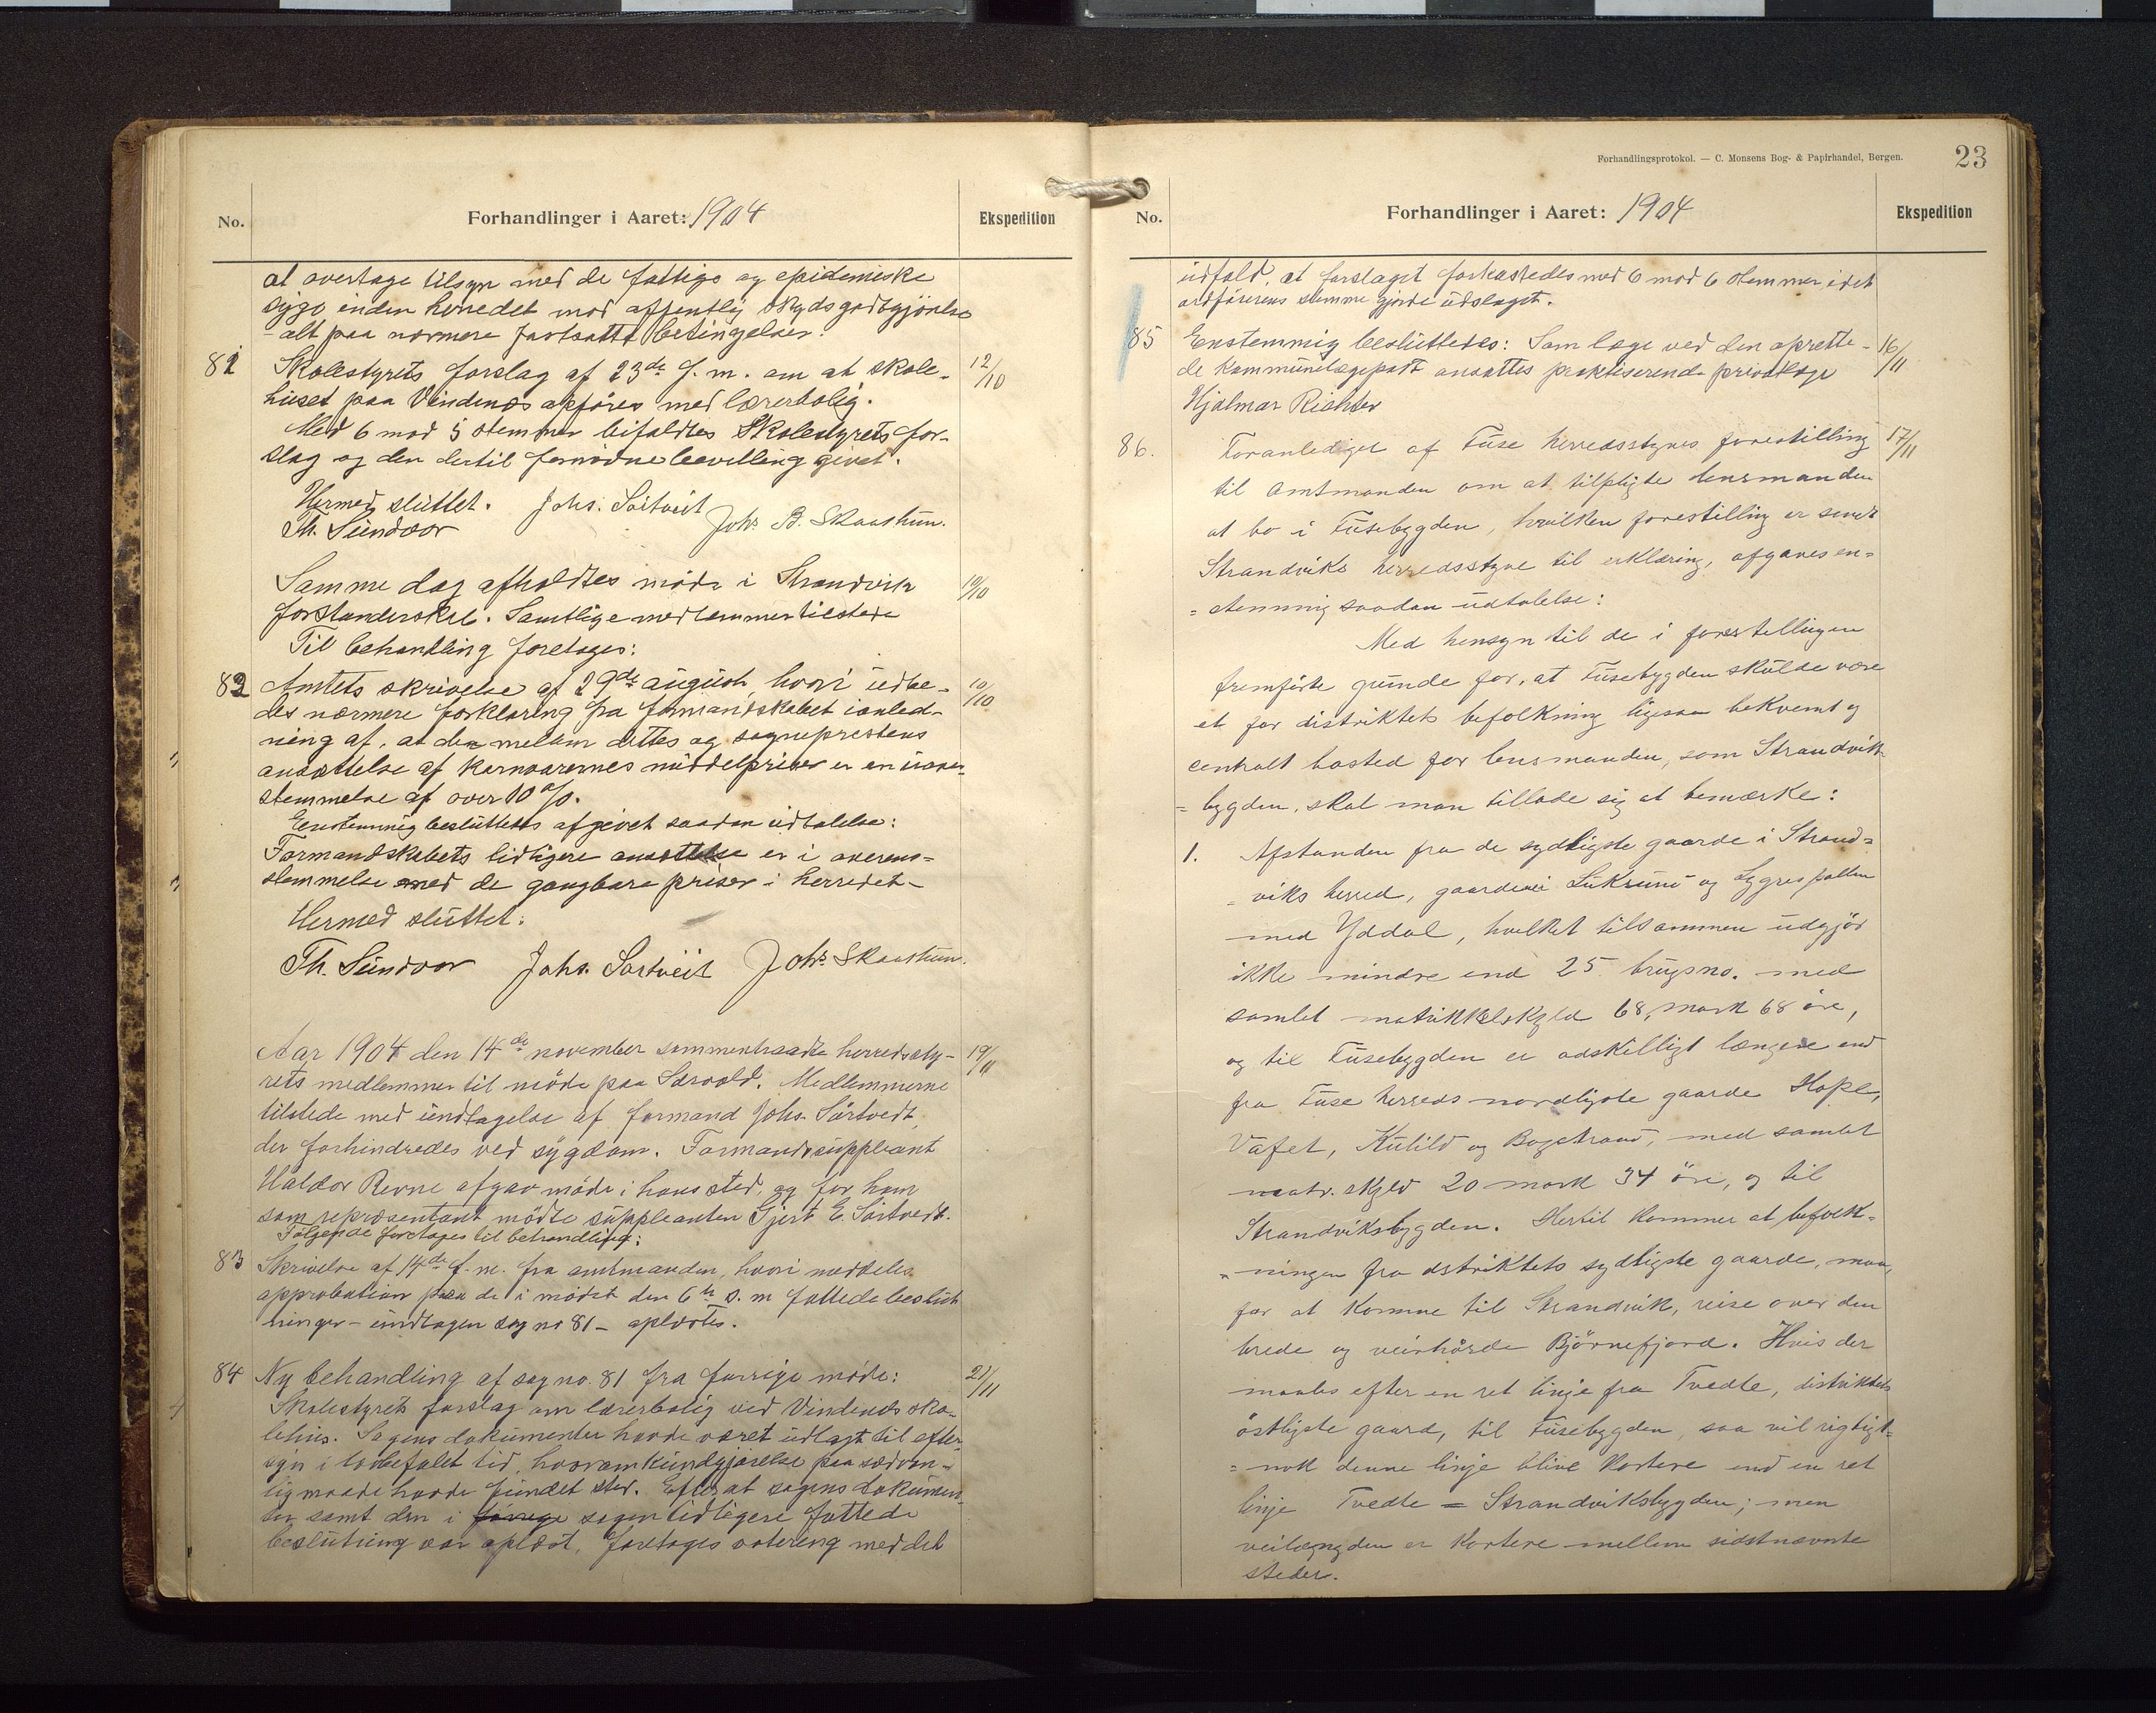 No.
Forhandlinger i Aaret: 1904
Ekspedition
at overtage tilsyn med de fattige og epidemiske
syge inden herredet mod offentlig skydsgodtgjörelse
- alt paa nærmere fastsatte betingelser.
81 Skolestyrets forslag af 23de f. m. om at skole- 12/10
huset paa Vindenes opföres med lærerbolig.
Med 6 mod 5 stemmer bifaldtes Skolestyrets for-
slag og den dertil fornödne bevilling givet.
Hermed sluttet. Johs. Söitveit
Th. Sundvor Johs B. Skaathun.
Samme dag afholdtes möde i Strandvik 10/10
forstanderskab. Samtlige medlemmer tilstede
Til behandling foretages:
82 Amtets skrivelse af 29de august, hvori udbe- 10/10
des nærmere forklaring fra formandskabet i anled-
ning af, at der mellem dettes og sogneprestens
ansættelse af kornvarernes middelpriser er en uover-
stemmelse af over 10 %.
Enstemmig besluttedes afgivet saadan udtalelse:
Formandskabets tidligere ansættelse er i overens-
stemmelse med de gangbare priser i herredet-
Hermed sluttet:
Th. Sundvor Johs. Sörtveit Johs Skaathun.
Aar 1904 den 14de november sammentraadte herredssty- 19/11
rets medlemmer til möde paa Sævold. Medlemmerne
tilstede med undtagelse af formand Johs. Sörtvedt,
der forhindredes ved sygdom. Formandssuppleant
Haldor Revne afgav möde i hans sted, og for ham
som repræsentant mödte suppleanten Gjert E. Sörtvedt.
Fölgende foretages til behandling:
83 Skrivelse af 14de f. m. fra amtmanden, hvori meddeles
approbation paa de i mödet den 6te s. m fattede beslut
ninger - undtagen sag no 81 - oplæstes.
84 Ny behandling af sag no. 81 fra forrige möde: 21/11
Skolestyrets forslag om lærerbolig ved Vindenes sko-
lehus. Sagens dokumenter havde været udlagt til efter-
syn i lovbefalet tid, hvorom kundgjörelse paa sædvan-
lig maade havde fundet sted. Efter at sagens dokumen-
ter samt den i forrige sagen tidligere fattede
beslutning var oplæst, foretages votering med det
Forhandlingsprotokol. — C. Monsens Bog- & Papirhandel, Bergen.
23
No.
Forhandlinger i Aaret: 1904
Ekspedition
udfald, at forslaget forkastedes med 6 mod 6 stemmer, idet
ordförerens stemme gjorde udslaget.
85 Enstemmig besluttedes: Som læge ved den oprette- 16/11
de kommunelægepost ansættes praktiserende privatlæge
Hjalmar Richter
86. Foranlediget af Fuse herredsstyres forestilling 17/11
til Amtmanden om at tilpligte lensmanden
at bo i Fusebygden, hvilken forestilling er sendt
Strandviks herredsstyre til erklæring, afgaves en=
= stemmig saadan udtalelse:
Med hensyn til de i forestillingen
fremförte grunde for, at Fusebygden skulde være
et for distriktets befolkning ligesaa bekvemt og
centralt bosted for lensmanden, som Strandvik-
= bygden, skal man tillade sig at bemærke:
1. Afstanden fra de sydligste gaarde i Strand=
= viks herred, gaardene Lukšund og Lygrespollen
med Yddal, hvilket tilsammen udgjör
ikke mindre end 25 brugsno. med
samlet matrikkelskyld 68, mark 68 öre,
og til Fusebygden er adskilligt længere end
fra Fuse herreds nordligste gaarde Hope,
Vafet, Kulild og Bogstrand, med samlet
matr. skyld 20 mark 34 öre, og til
Strandviksbygden. Hertil kommer at befolk=
= ningen fra dstriktets sydligste gaarde, maa,
for at komme til Strandvik, reise over den
brede og veirhårde Björnefjord. Hvis der
maales efter en ret linje fra Tvedte, distriktets
östligste gaard, til Fusebygden, saa vil rigtigt=
= nok denne linje blive kortere end en ret
linje Tvedte = Strandviksbygden; men
veilængden er kortere mellem sidstnævnte
steder.